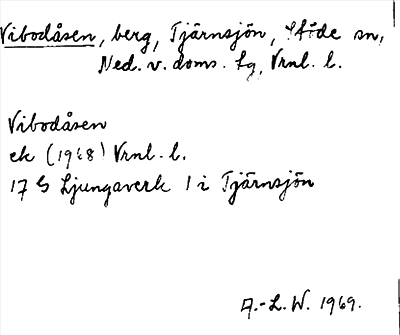 Vibodåsen, berg, Tjärnsjön, Stöde sn,
Ned. v. doms. fg, Vrnl. l.
Vibodåsen
ek (1968) Vrnl. l.
17 G Ljungaverk 1 i Tjärnsjön
A.-L. W. 1969.